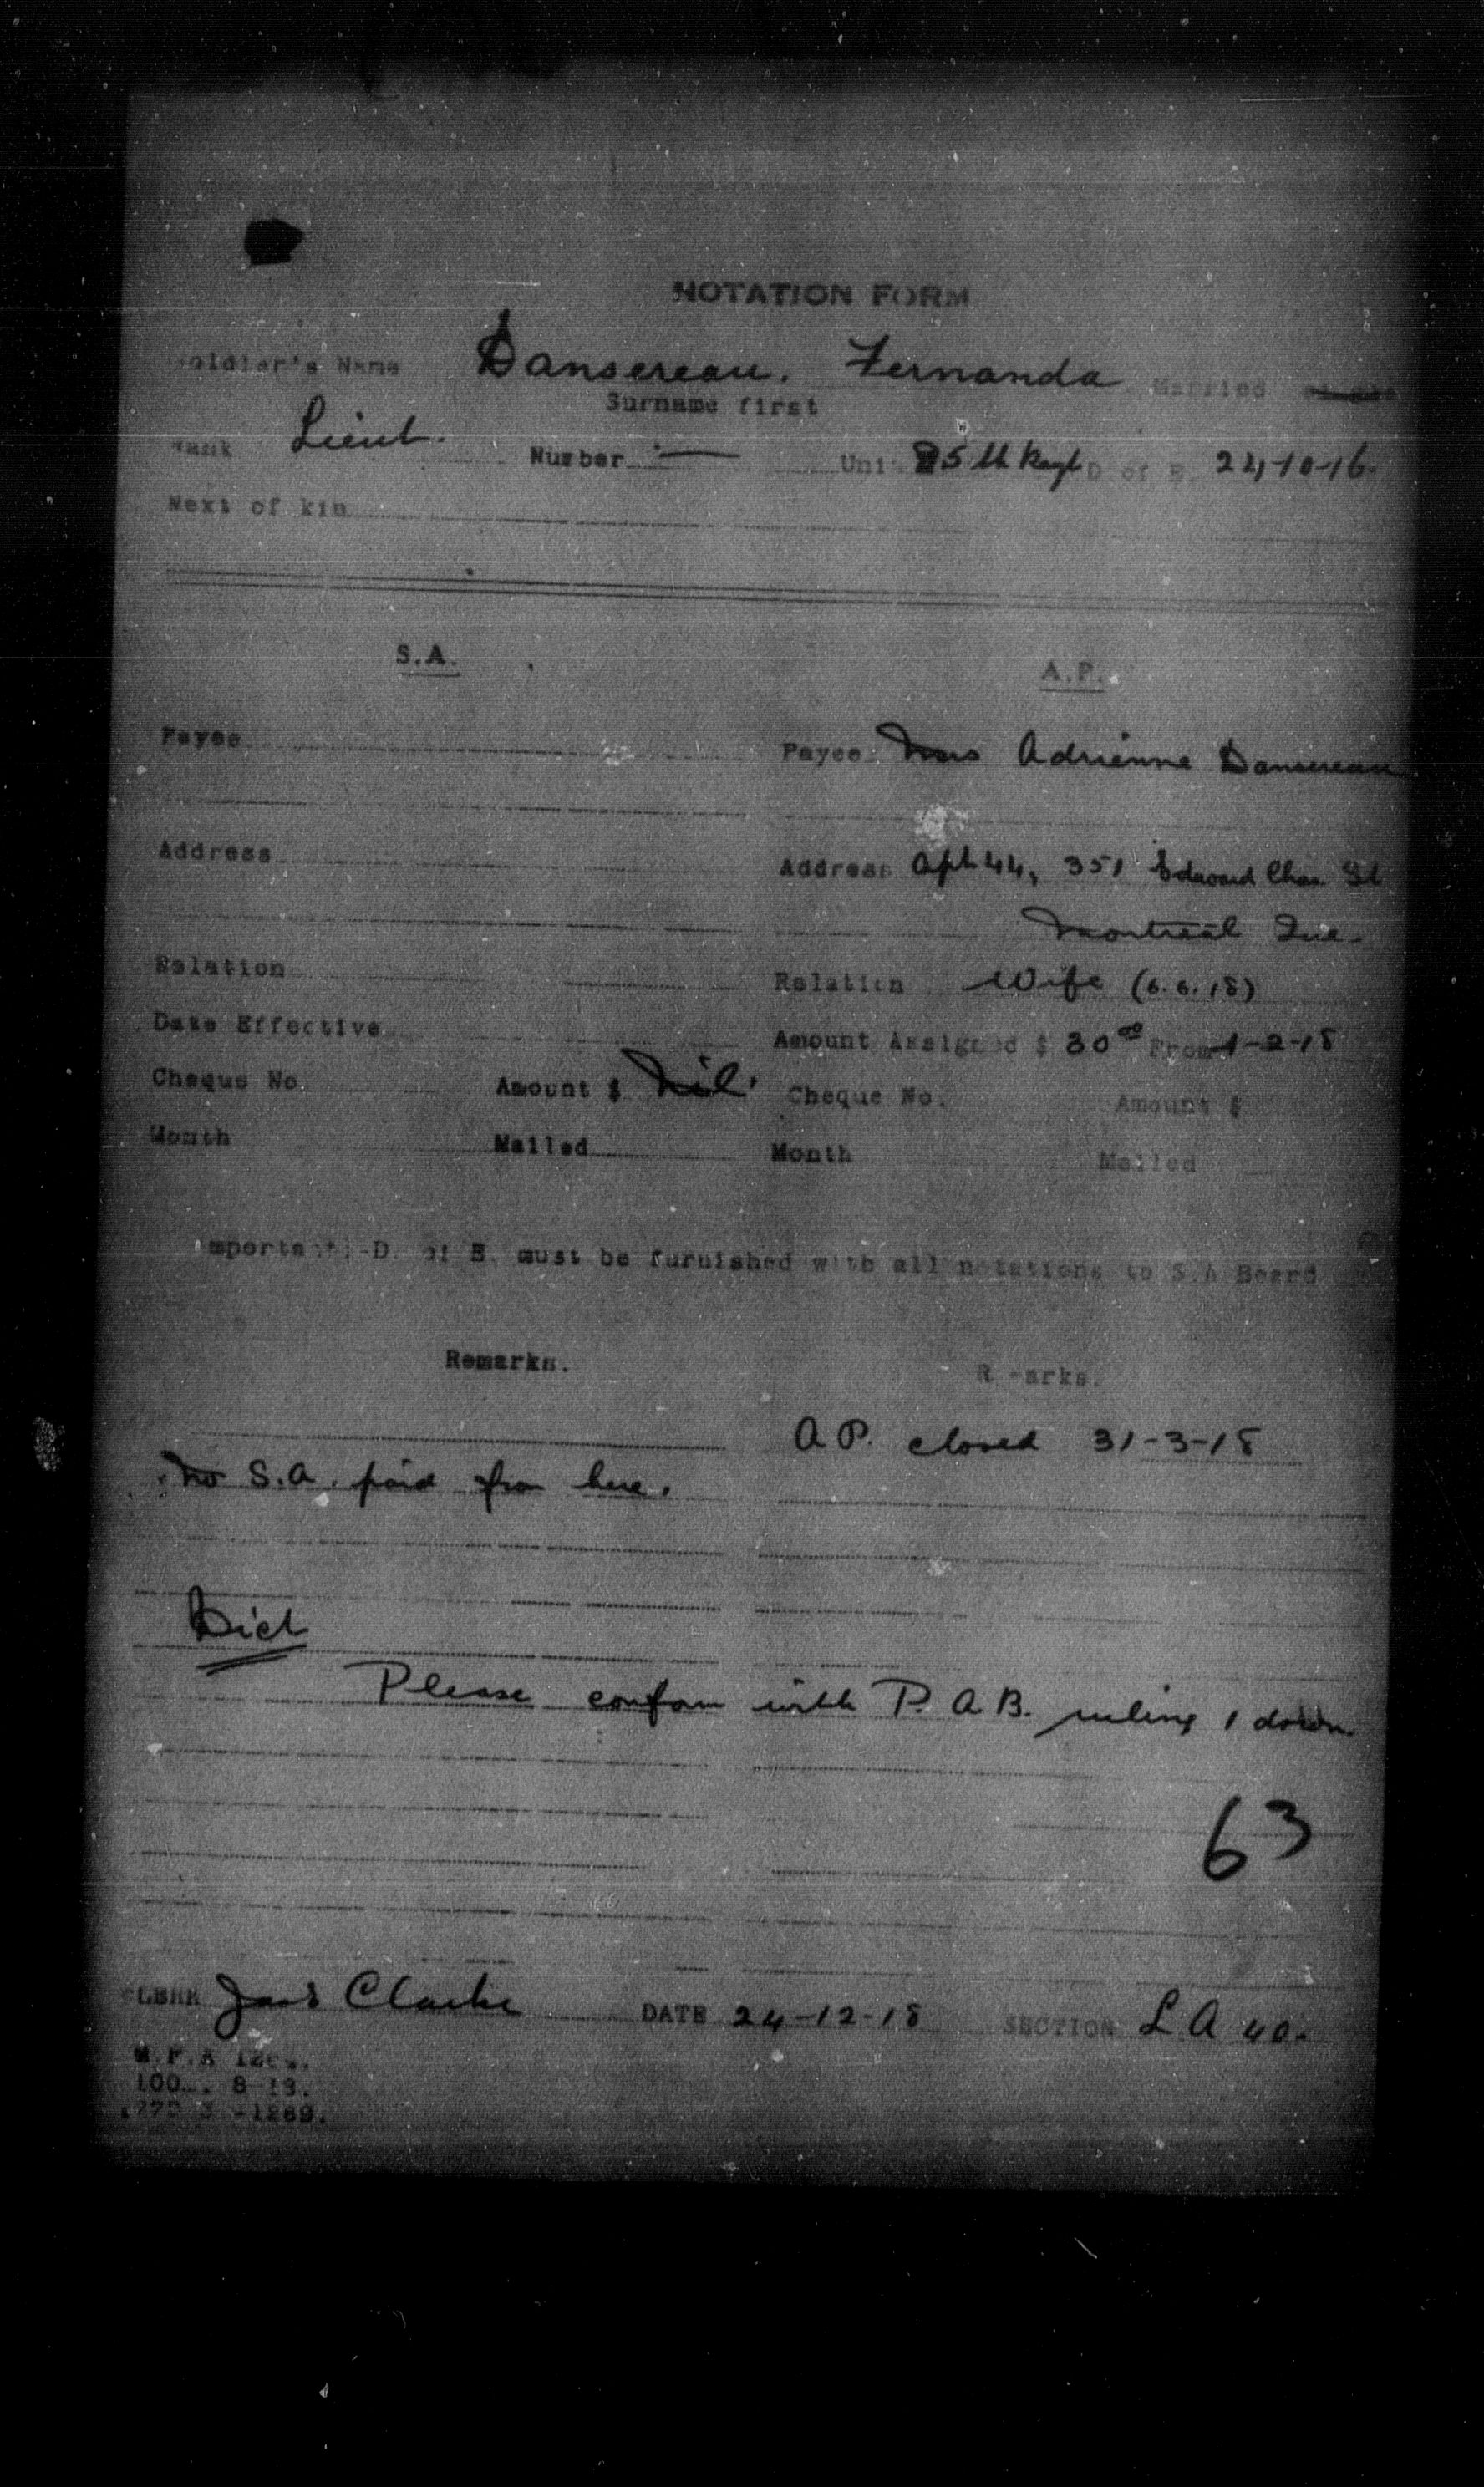 NOTATION FORM
Soldier's Name Dansereau. Fernanda Married
Surname first
Rank Lieut. Number — Unit 85th Regt D of E. 24-10-16.
Next of kin
S.A. A.P.
Payee Payee Mrs Adrienne Dansereau
Address Address Apt 44, 351 Edward Chas. St
Montreal Que.
Relation Relation Wife (6.6.18)
Date Effective Amount Assigned $ 30 00 From 1-2-18
Cheque No. Amount $ Nil. Cheque No. Amount $
Month Mailed Month Mailed
Important:-D. of E. must be furnished with all notations to S.A Board
Remarks. Remarks.
A.P. closed 31-3-18
No S.A. paid from here.
Dict
Please conform with P.A.B. ruling 1 down.
63
CLERK Jas Clarke DATE 24-12-18 SECTION L.A 40.
100 8-18.
-1289.